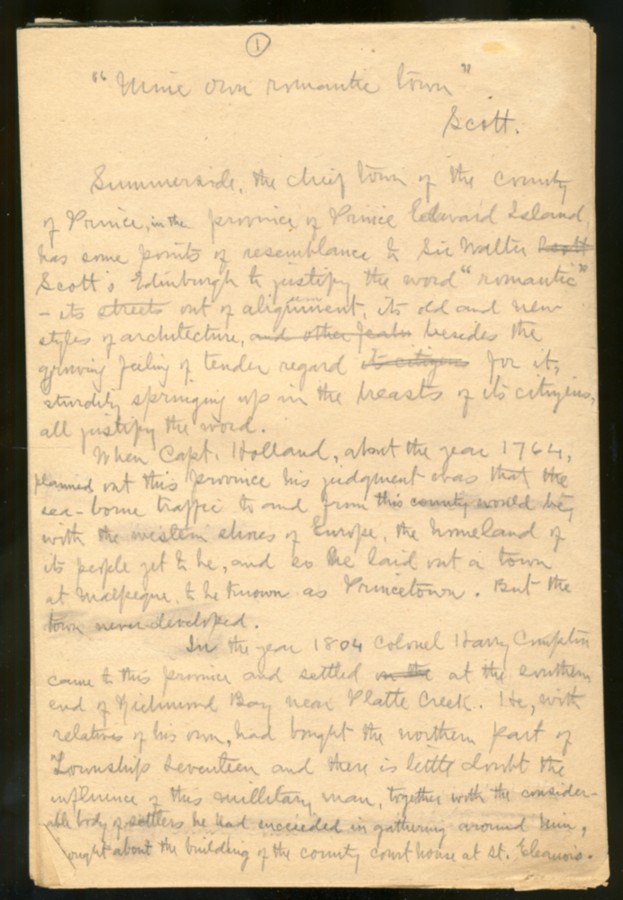 1
"Mine own romantic town"
Scott.
Summerside, the chief town of the county
of Prince, in the province of Prince Edward Island
has some points of resemblance to Sir Walter Scott
Scott's Edinburgh to justify the word "romantic"
- its streets out of alignment, its old and new
styles of architecture, and other besides the
growing feeling of tender regard its citizens for it,
sturdily springing up in the breasts of its citizens,
all justify the word.
When Capt. Holland, about the year 1764,
planned out this province his judgment was that the
sea-borne traffic to and from this county would be
with the western shores of Europe, the homeland of
its people yet to be, and so he laid out a town
at Malpeque, to be known as Princetown. But the
town never developed.
In the year 1804 Colonel Harry Compton
came to this province and settled on the at the southern
end of Richmond Bay near Platte Creek. He, with
relatives of his own, had bought the northern part of
Township Seventeen and there is little doubt the
influence of this military man, together with the consider-
able body of settlers he had succeeded in gathering around him,
ought about the building of the county court house at St. Eleanors.